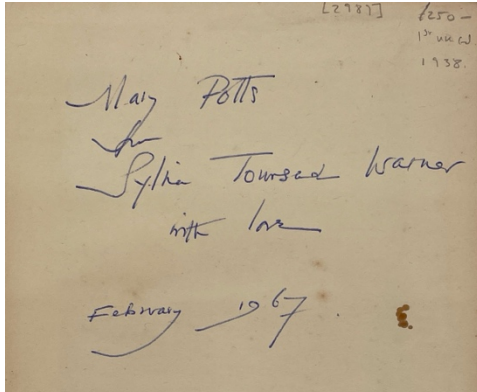 [2987] £250–
1st UK ed
1938.
Mary Potts
from
Sylvia Townsend Warner
with love
February 1967